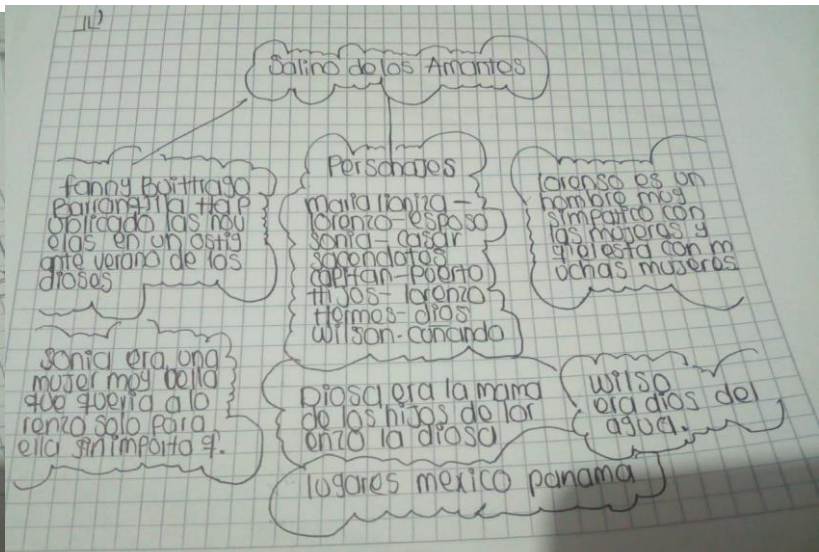 Salino de los Amantes
fanny Buithago
Barranqilla Hap
uplicado las nov
elas en un ostig
ante verano de los
dioses
Personajes
maria lionza -
lorenzo - esposo
sonia - casar
sacondotos
capitan - Puerto
Hijos - lorenzo
Hermes - dias
wilson - conando
lorenso es un
hombre muy
simpatico con
las mojeres y
qiel esta con m
uchas museres
sonia era una
mujer moy bella
que queria a lo
renzo solo para
ella sin importa q.
Diosa era la mama
de los hijos de lor
enzo la diosa
wilso
era dios del
agua.
lugares mexico panama